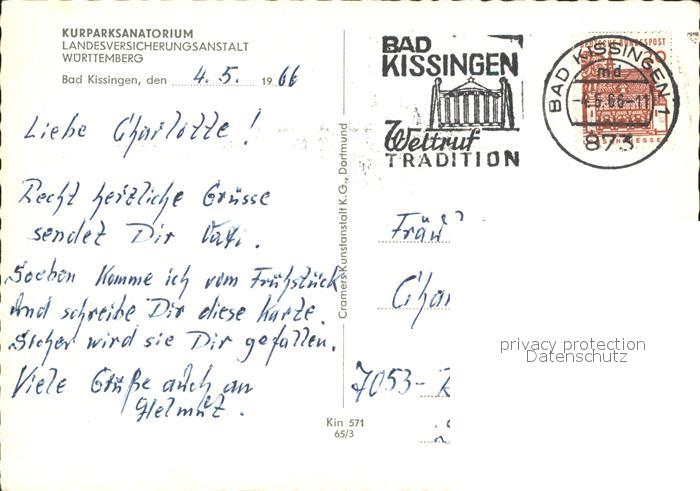 KURPARKSANATORIUM
LANDESVERSICHERUNGSANSTALT
WÜRTTEMBERG
Bad Kissingen, den 4.5. 1966
Liebe Charlotte!
Recht herzliche Grüsse
sendet Dir Vati.
Soeben komme ich vom Frühstück
und schreibe Dir diese Karte.
Sicher wird sie Dir gefallen.
Viele Grüße auch an
Helmut.
Cramers Kunstanstalt K.G., Dortmund
Kin 571
65/3
BAD
KISSINGEN
Weltruf
TRADITION
BAD KISSINGEN 1
md
-4.5.66-11
873
BUNDESPOST
Char
7053-
privacy protection
Datenschutz